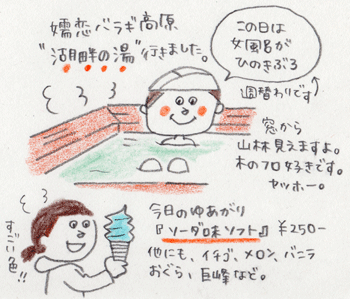 嬬恋バラギ高原
"湖畔の湯"行きました。
この日は
女風呂が
ひのきぶろ
週替わりです
窓から
山林見えますよ。
木のフロ好きです。
ヤッホー。
今日のゆあがり
『ソーダ味ソフト』¥250-
他にも、イチゴ、メロン、バニラ
おぐら、巨峰など。
すごい色!!